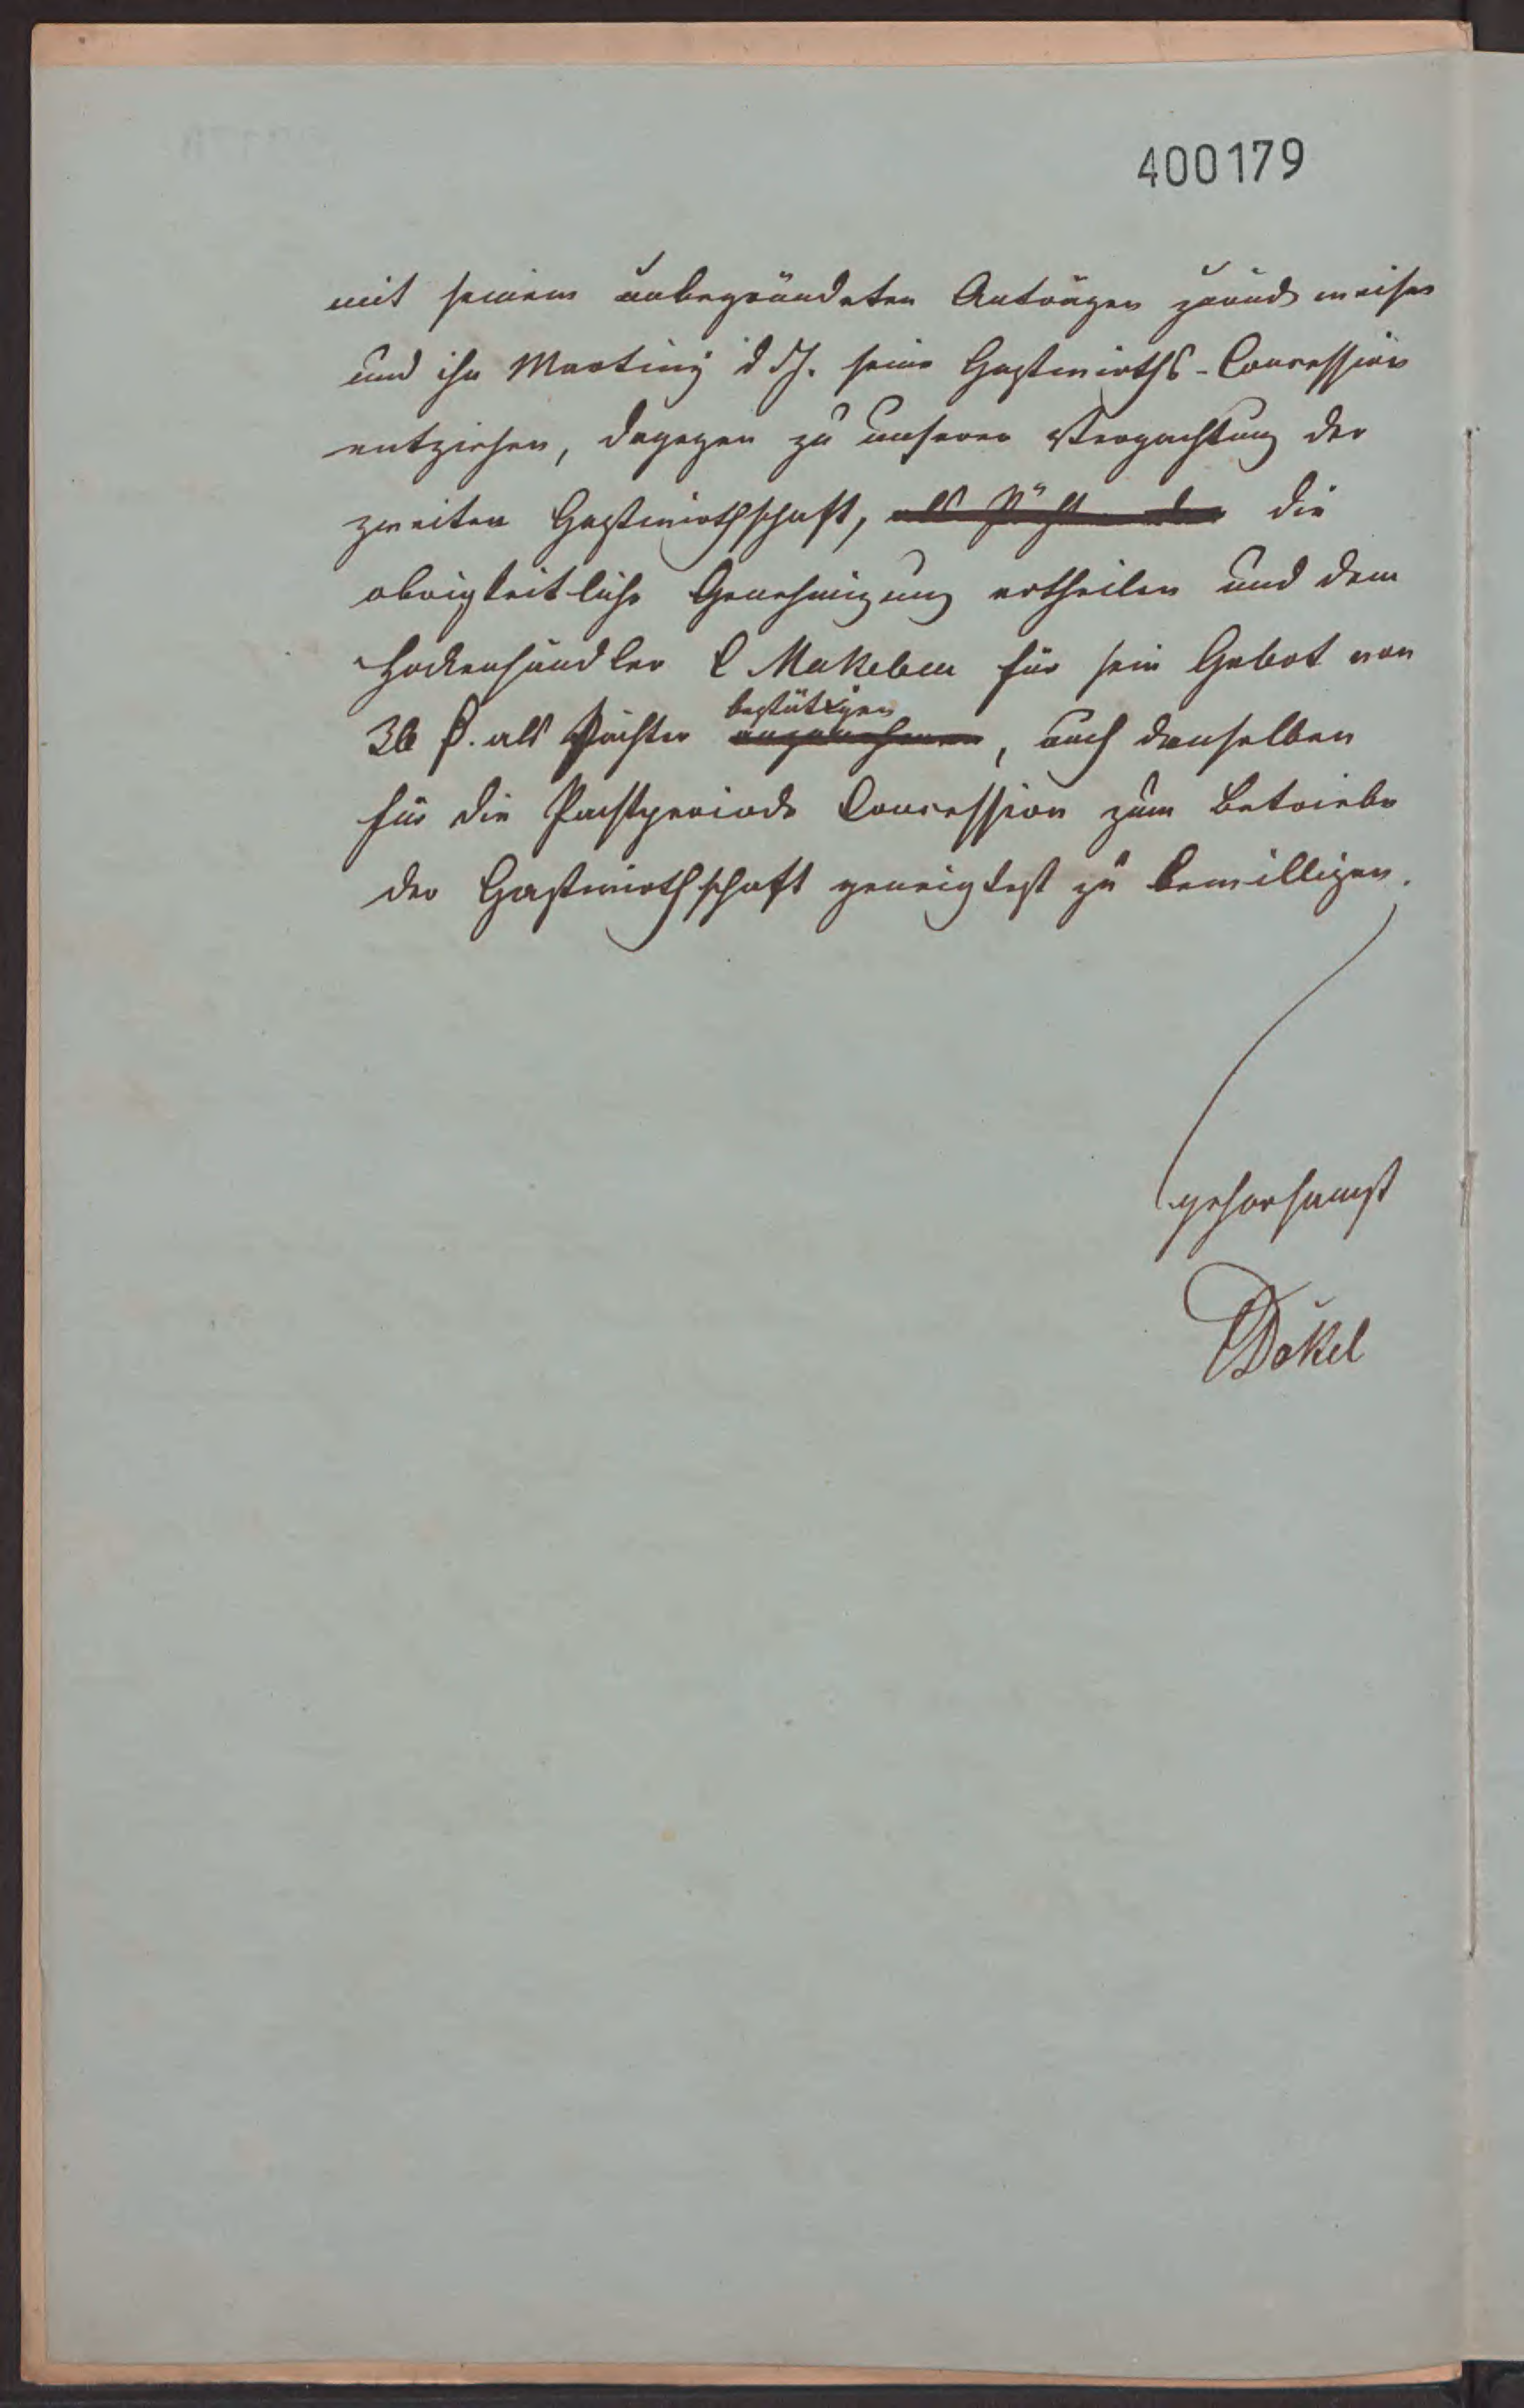 400179
mit seinem unbegründeten Anträgen zurück weisen
und ihn Martini d. J. seine Gastwirths-Concession
entziehen, dagegen zu unserer Verpachtung der
zweiten Gastwirthschaft, die
obrigkeitliche Genehmigung ertheilen und dem
Hockenhändler C Makeben für sein Gebot von
bestätigen
36 als Pächter anzunehmen, auch denselben
für die Pachtperiode Concession zum Betriebe
der Gastwirthschaft geneigtest zu bewilligen.
gehorsamst
Dökel